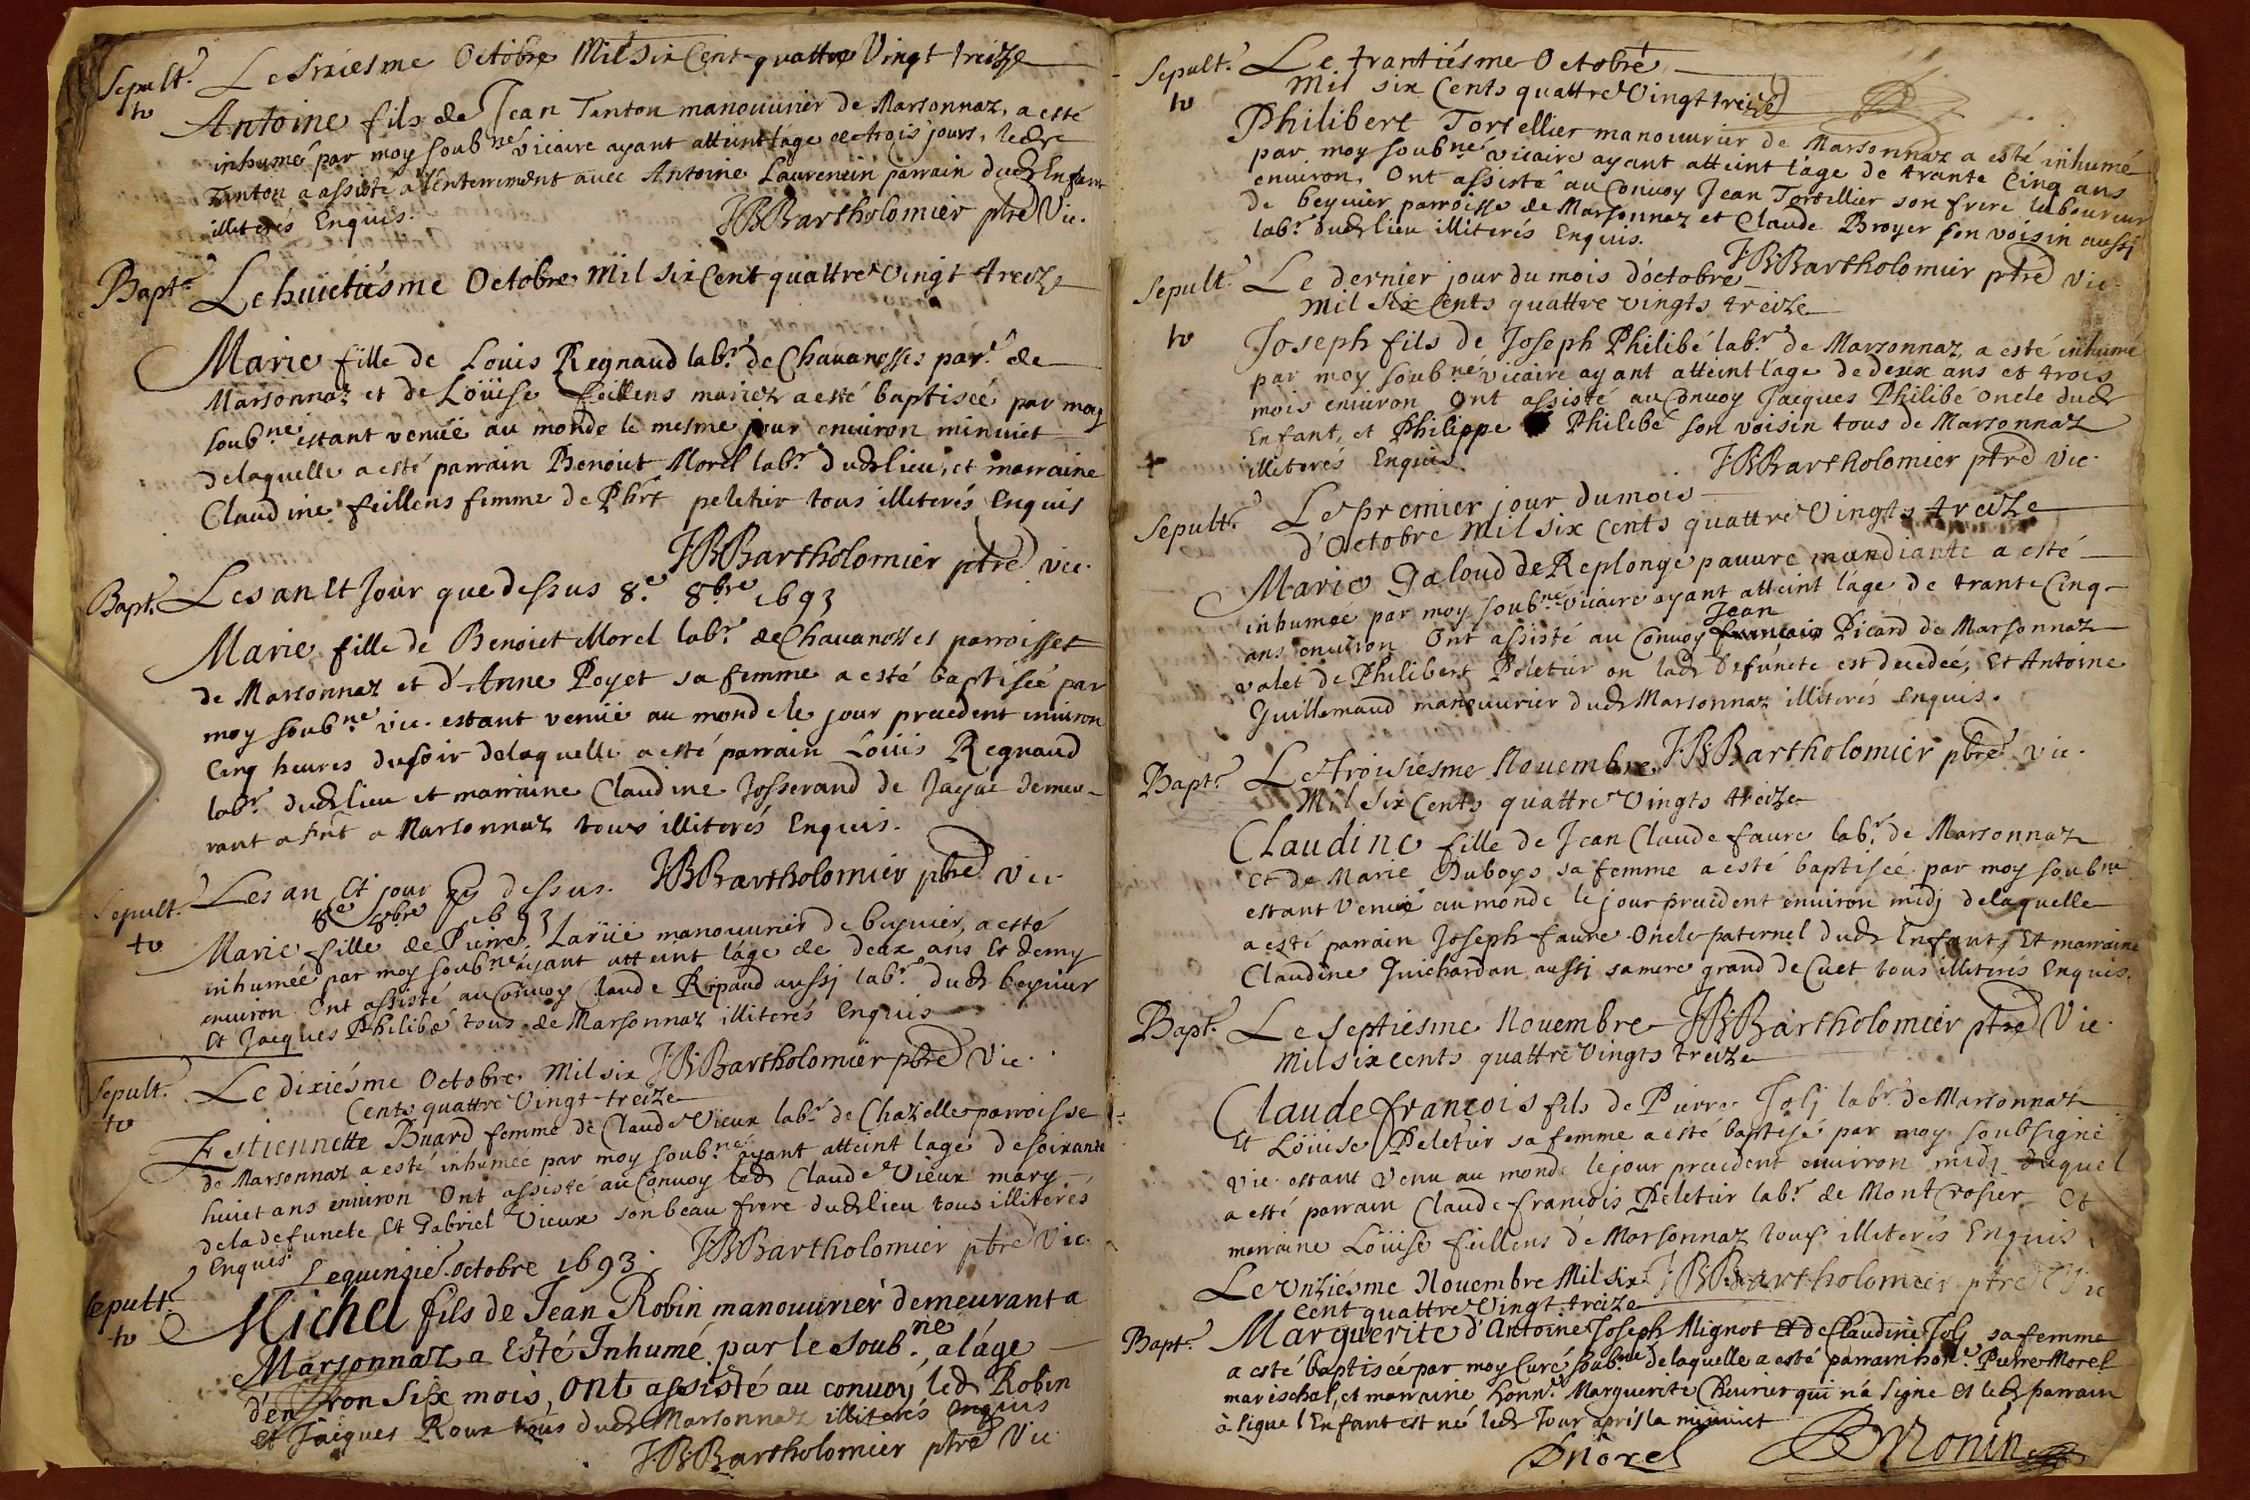 Sepult.e Le sixiesme Octobre Mil six Cent quattre Vingt treize
Antoine fils de Jean Tanton manouurier de Marsonnaz, a esté
inhumé par moy soubné vicaire ayant atteint lage de trois jours, ledre
Tanton a assisté a l'enterrement auec Antoine Laurencin parrain dud Enfant
illiterés Enquis.
JBBartholomier ptre Vic.
Bapt.e Le huictiésme Octobre Mil six Cent quattre Vingt treize
Marie fille de Louis Regnaud labr. de Chauanosses par. de
Marsonnaz et de Loüise feillens mariez a esté baptiseé par moy
soubné estant venuë au monde le mesme jour enuiron minuict
delaquelle a esté parrain Benoict Morel labr. dud lieu, et marraine
Claudine feillens femme de Phrt peletier tous illiterés Enquis
JBBartholomier ptre vic.
Bapt.e Les an et Jour que dessus 8.e 8bre 1693
Marie fille de Benoict Morel labr. de Chauanosses parroisse
de Marsonnaz et d'Anne Poyet sa femme a esté baptiseé par
moy soubné vic. estant venuë au monde le jour precedent enuiron
Cinq heures du soir delaquelle a esté parrain Loüis Regnaud
labr. dud lieu et marraine Claudine Josserand de Jayac demeu-
rant a Pnt a Marsonnaz tous illiterés Enquis.
JBBartholomier ptre Vic.
Sepult. Les an et jour dessus.
8e 8bre 1693
Marie fille de Pierre Larüe manouurier de beyuier, a esté
inhumeé par moy soubné ayant atteint láge de deux ans et demy
enuiron Ont assisté au Conuoy Claude Ripaud aussj labr. dud beyuier
Et Jacques Philibé tous de Marsonnaz illiterés Enquis
JBBartholomier ptre Vic.
Sepult. Le dixiésme Octobre Mil six
Cents quattre Vingt treize
Estiennette Buard femme de Claude Vieux labr. de Chazelle parroisse
de Marsonnaz a esté inhumeé par moy soubné ayant atteint lage de soixante
huict ans enuiron Ont assisté au Conuoy led Claude Vieux mary
dela defuncte Et Gabriel Vieux son beau frere dud lieu tous illiterés
Enquis
JBBartholomier ptre Vic.
Le quinzie. octobre 1693.
Sepult. Michel fils de Jean Robin manouurier demeurant a
Marsonnaz a Esté Inhumé par le soubné, a láge
d'enuiron Six mois, ont assisté au conuoy led Robin
et Jaiques Roux tous dud Marsonnaz illiterés enquis
JBBartholomier ptre Vic.
Sepult.e Le trantiésme Octobre
Mil six Cents quattre Vingt treize
Philibert Tortellier manouurier de Marsonnaz a esté inhumé
par moy soubné vicaire ayant atteint láge de trante Cinq ans
enuiron. Ont assisté au Conuoy Jean Tortellier son frere laboureur
de beyuier parroisse de Marsonnaz et Claude Broyer son voisin aussj
labr. dud lieu illiterés Enquis.
JBBartholomier ptre Vic.
Sepult. Le dernier jour du mois d'octobre
Mil six Cents quattre vingts treize
Joseph fils de Joseph Philibé labr. de Marsonnaz, a esté inhumé
par moy soubné vicaire ayant atteint láge de deux ans et trois
mois enuiron Ont assisté au Conuoy Jacques Philibé oncle dud
Enfant, et Philippe Philibé son voisin tous de Marsonnaz
illiterés Enquis.
JBBartholomier ptre Vic.
Sepult.e Le premier jour du mois
d'Octobre Mil six Cents quattre Vingts treize
Marie Galoud de Replonge pauure mandiante a esté
inhumeé par moy soubné vicaire ayant atteint láge de trante Cinq
Jean
ans enuiron Ont assisté au Conuoy francois Picard de Marsonnaz
valet de Philibert Peletier ou lad defuncte est decedeé, Et Antoine
Guillemaud manouurier dud Marsonnaz illiterés Enquis.
JBBartholomier ptre Vic.
Bapt.e Le troisiésme Nouembre
Mil six Cents quattre Vingts treize
Claudine fille de Jean Claude faure labr. de Marsonnaz
et de Marie Duboys sa femme a esté baptiseé par moy soubné
estant Venuë au monde le jour precedent enuiron midj delaquelle
a esté parrain Joseph faure Oncle paternel dud Enfant, Et marraine
Claudine Guichardan aussj sa mere grand de Cuet tous illiterés Enquis.
JBBartholomier ptre Vic.
Bapt.e Le Septiésme Nouembre
Mil six cents quattre Vingts treize
Claude françois fils de Pierre Jolj labr. de Marsonnaz
Et Loüise Peletier sa femme a esté baptisé par moy soubsigné
Vic. estant Venu au monde le jour precedent enuiron midj duquel
a esté parrain Claude francois Peletier labr. de Mont Crosier Et
marraine Loüise feillens de Marsonnaz tous illiterés Enquis
JBBartholomier ptre Vic
Le Vnziésme Nouembre Mil six
Cent quattre Vingt treize
Bapt.e Marguerite d'Antoine Joseph Mignot et de Claudine Jolj sa femme
a esté baptiseé par moy Curé soubné delaquelle a esté parrain hone. Pierre Morel
marischal, et marraine honne. Marguerite Cheurier qui n'a signe et led parrain
à signe l'Enfant est né led Jour aprés la minuict
Pmorel
Monin